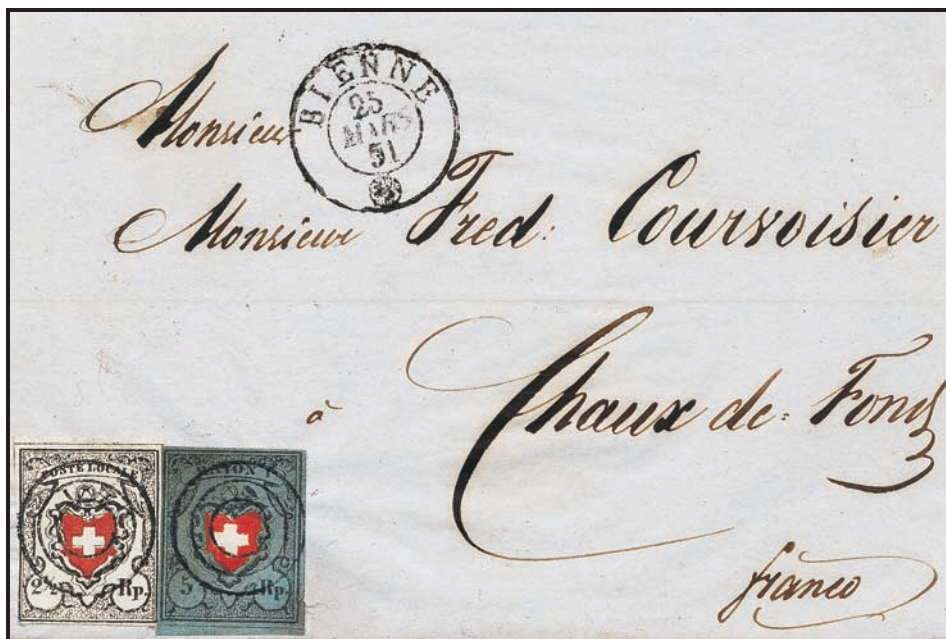 BIENNE
25
MARS
51
Monsieur
Monsieur Fred: Courvoisier
à Chaux de=Fonds
franco
POSTE LOCALE
2½ Rp.
RAYON I
5 Rp.